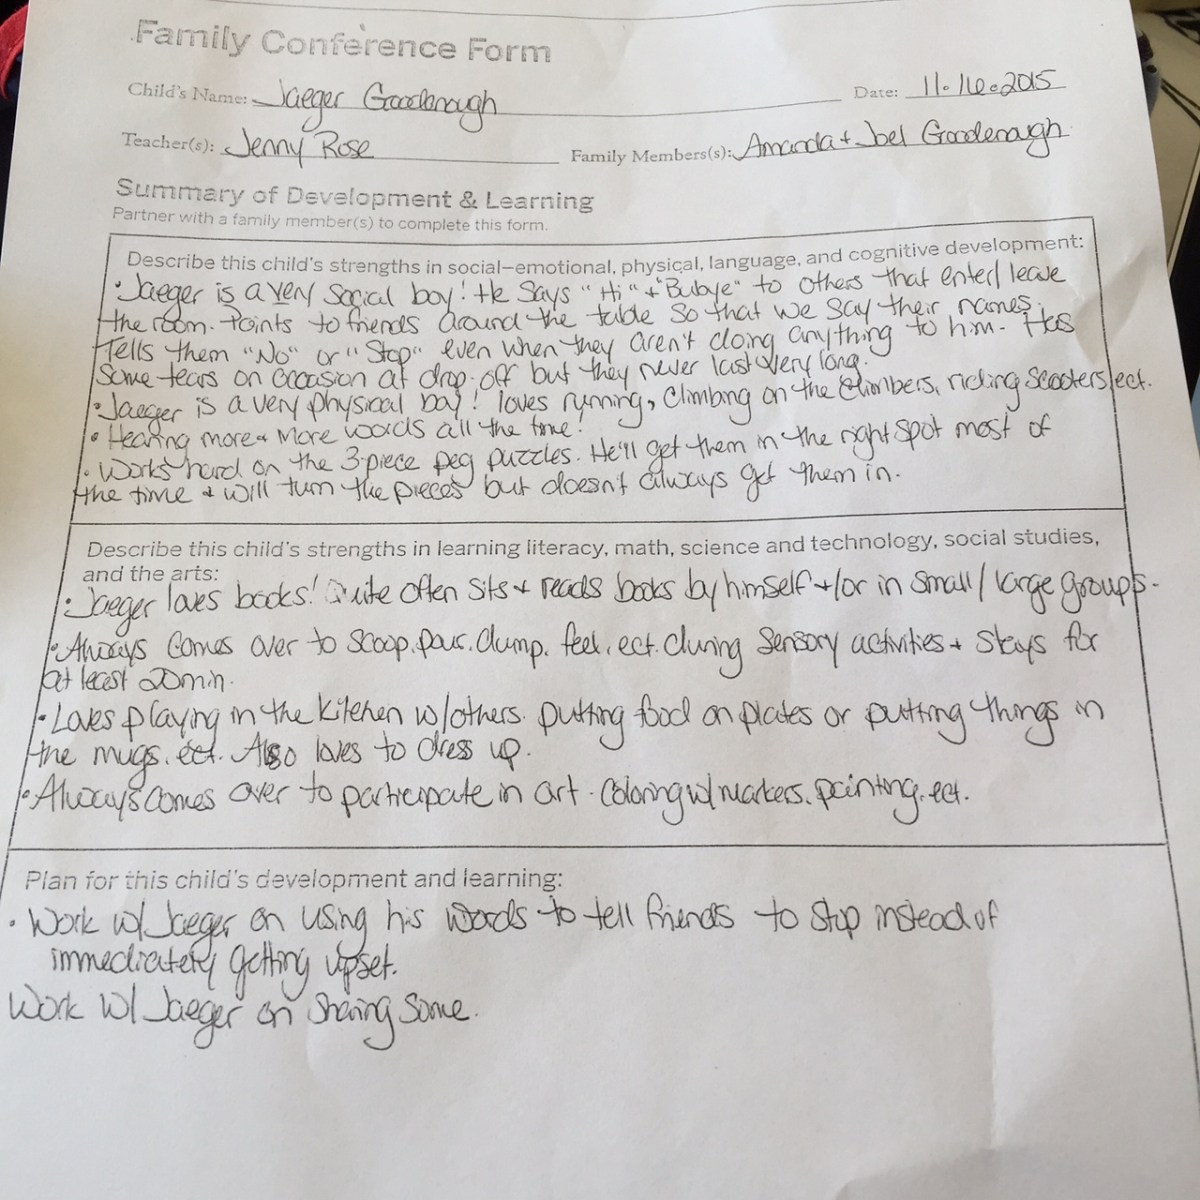 Family Conference Form
Child's Name: Jaeger Goodenough
Date: 11.16.2015
Teacher(s): Jenny Rose
Family Members(s): Amanda + Joel Goodenough
Summary of Development & Learning
Partner with a family member(s) to complete this form.
Describe this child's strengths in social-emotional, physical, language, and cognitive development:
• Jaeger is a very social boy! He says "Hi" + "Bubye" to others that enter/leave
the room. Points to friends around the table so that we say their names.
Tells them "No" or "Stop" even when they aren't doing anything to him. Has
some tears on occasion at drop-off but they never last very long.
• Jaeger is a very physical boy! loves running, climbing on the climbers, riding scooters, ect.
• Hearing more + more words all the time!
• Works hard on the 3-piece peg puzzles. He'll get them in the right spot most of
the time + will turn the pieces but doesn't always get them in.
Describe this child's strengths in learning literacy, math, science and technology, social studies,
and the arts:
• Jaeger loves books! Quite often sits + reads books by himself +/or in small/large groups.
• Always comes over to scoop, pour, dump, feel, ect. during sensory activities + stays for
at least 20min.
• Loves playing in the kitchen w/others. putting food on plates or putting things in
the mugs, ect. Also loves to dress up.
• Always comes over to participate in art. Coloring w/markers, painting, ect.
Plan for this child's development and learning:
• Work w/ Jaeger on using his words to tell friends to stop instead of
immediately getting upset.
Work w/ Jaeger on sharing some.